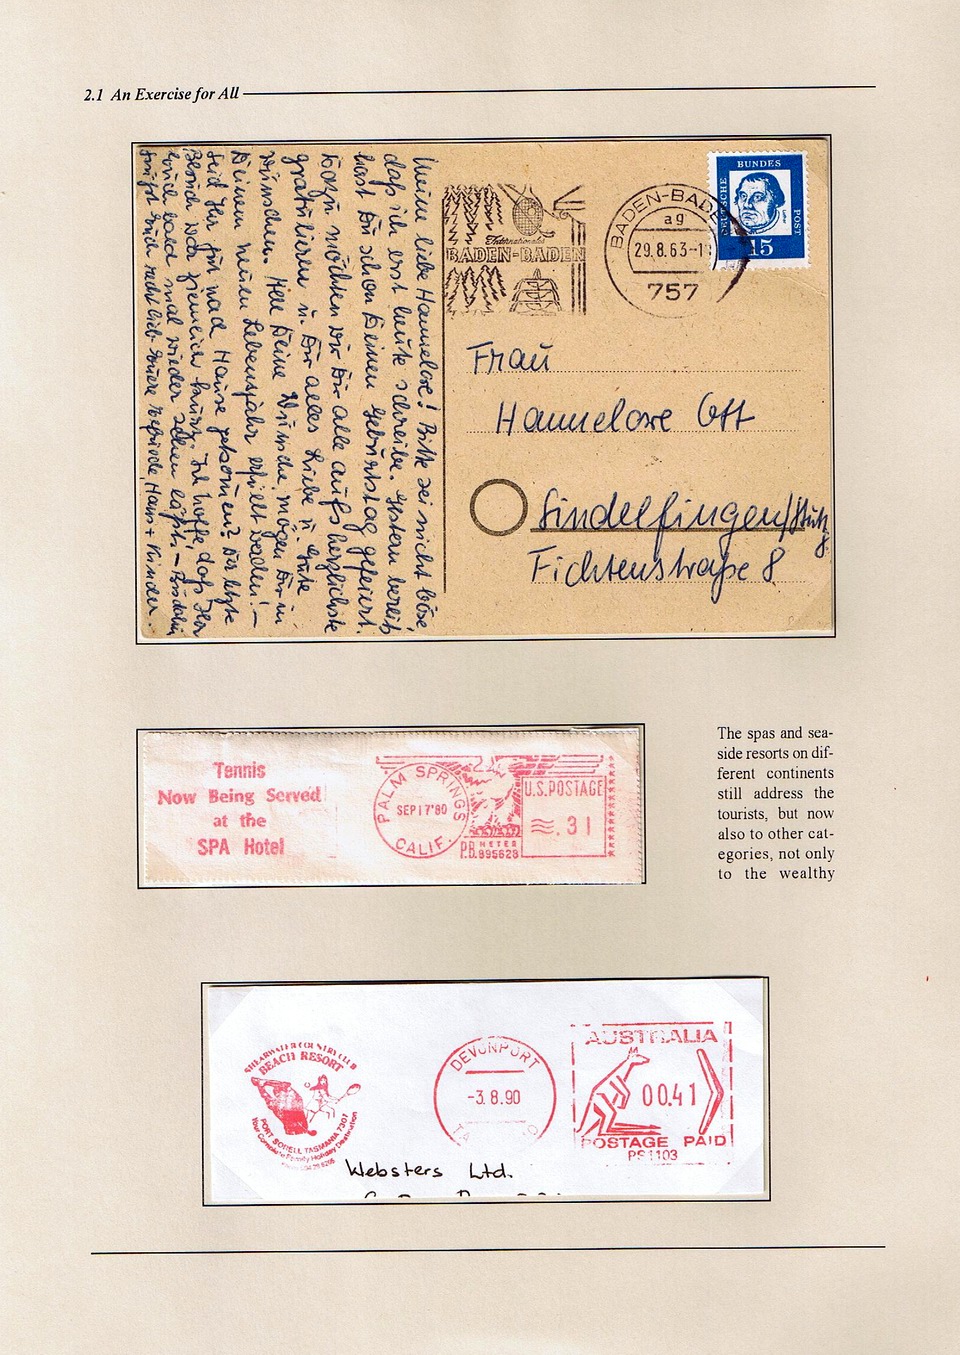 2.1 An Exercise for All
Meine liebe Hannelore! Bitte sei nicht böse
daß ich erst heute schreibe. Gestern bereits
hast Du schon Deinen Geburtstag gefeiert.
Dazu möchten wir Dir alle aufs herzlichste
gratulieren u. Dir alles Liebe u. Gute
wünschen. All Deine Wünsche, mögen Dir in
Deinem neuen Lebensjahr erfüllt werden! —
Seid Ihr gut nach Hause gekommen? Der letzte
Besuch war ziemlich kurz. Ich hoffe, daß Ihr
Euch bald mal wieder sehen laßt. —
Euch recht lieb Eure Hans + Kinder.
Internationales
BADEN-BADEN
BADEN-BADEN
ag
29.8.63-1
757
DEUTSCHE
BUNDES
POST
15
Frau
Hannelore Ott
Sindelfingen/Stuttg
Fichtenstraße 8
Tennis
Now Being Served
at the
SPA Hotel
PALM SPRINGS
SEP17'80
CALIF.
P.B. METER
895628
U.S.POSTAGE
.31
The spas and sea-
side resorts on dif-
ferent continents
still address the
tourists, but now
also to other cat-
egories, not only
to the wealthy
SHEARWATER COUNTRY CLUB
BEACH RESORT
PORT SORELL TASMANIA 7307
Your Complete Family Holiday Destination
DEVONPORT
-3.8.90
AUSTRALIA
00.41
POSTAGE PAID
PS1103
Websters Ltd.